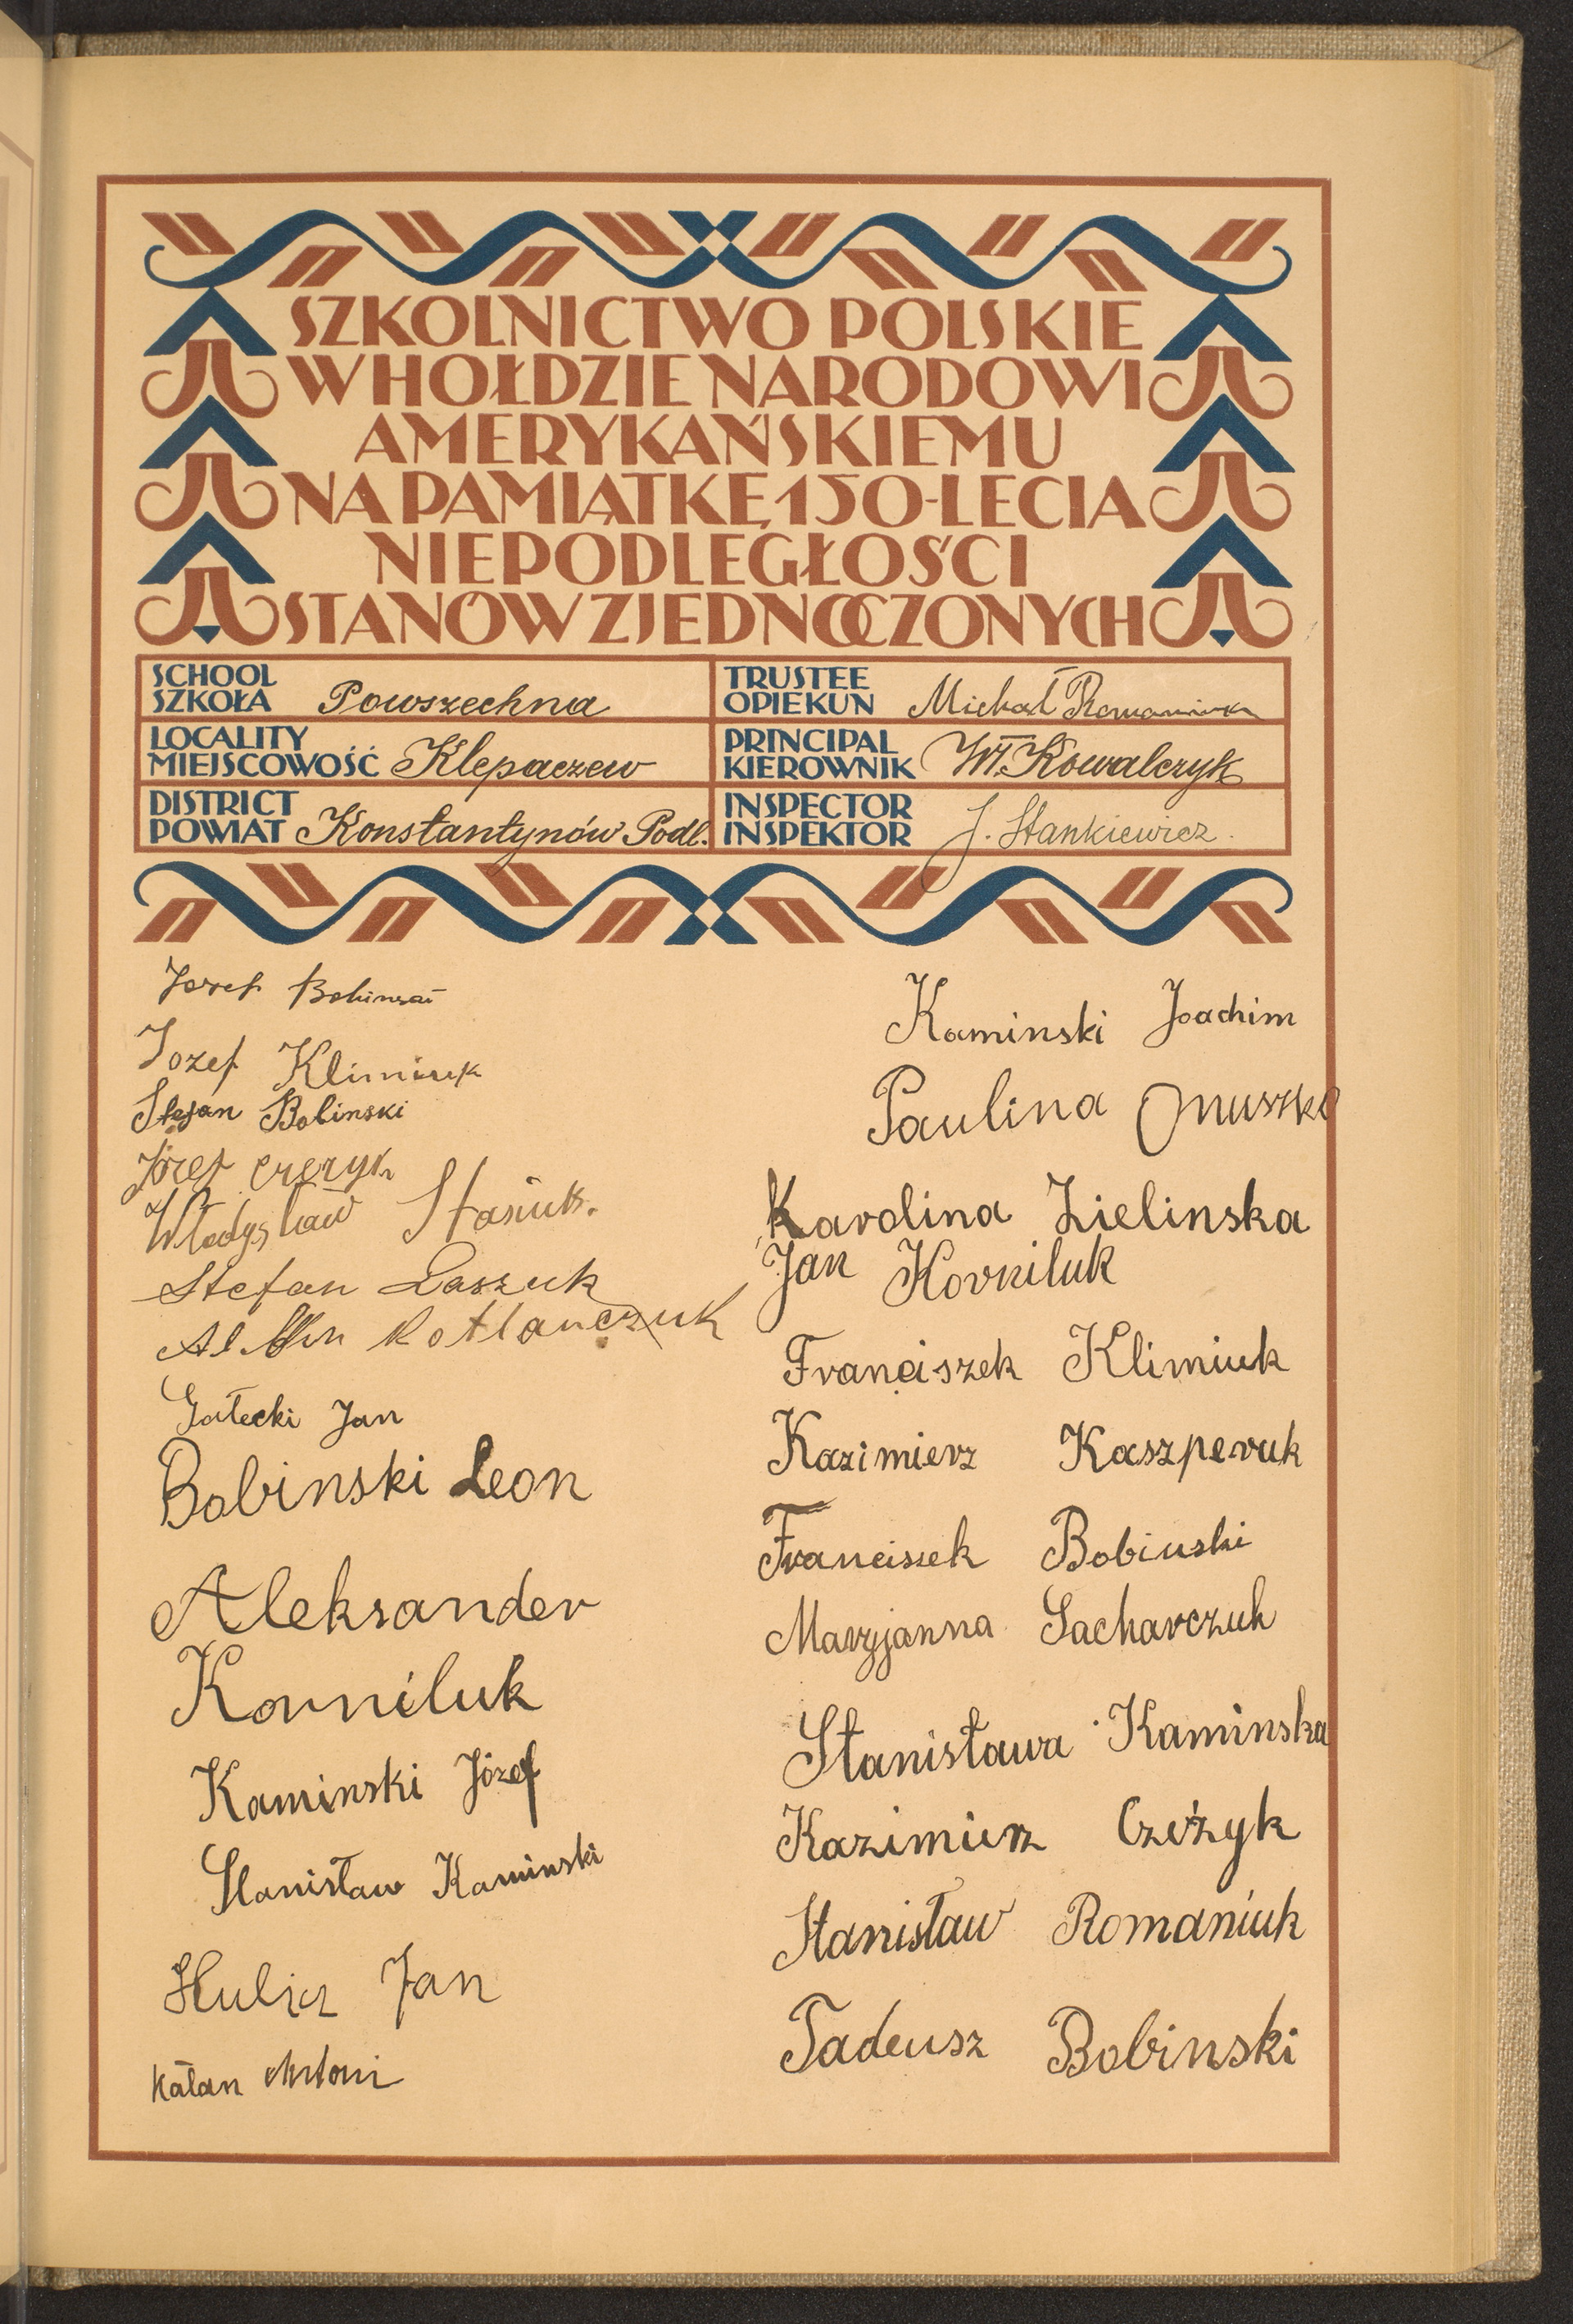 SZKOLNICTWO POLSKIE
W HOŁDZIE NARODOWI
AMERYKAŃSKIEMU
NA PAMIĄTKĘ 150-LECIA
NIEPODLEGŁOŚCI
STANÓW ZJEDNOCZONYCH
SCHOOL
SZKOŁA Powszechna
TRUSTEE
OPIEKUN Michał Romaniuk
LOCALITY
MIEJSCOWOŚĆ Klepaczew
PRINCIPAL
KIEROWNIK Wł. Kowalczyk
DISTRICT
POWIAT Konstantynów Podl.
INSPECTOR
INSPEKTOR J. Stankiewicz.
Jozef
Jozef Klimiuk
Stefan Bobinski
Józef
Władysław Stasiuk.
Stefan Laszuk
Kotlanczuk
Gałecki Jan
Bobinski Leon
Aleksander
Korniluk
Kaminski Józef
Stanisław Kaminski
Jan
Kałan Antoni
Kaminski Joachim
Paulina Onuszko
Karolina Zielinska
Jan Korniluk
Franciszek Klimiuk
Kazimierz Kaszperuk
Franciszek Bobinski
Maryjanna Sacharczuk
Stanisława Kaminska
Kazimierz Czeżyk
Stanisław Romaniuk
Tadeusz Bobinski